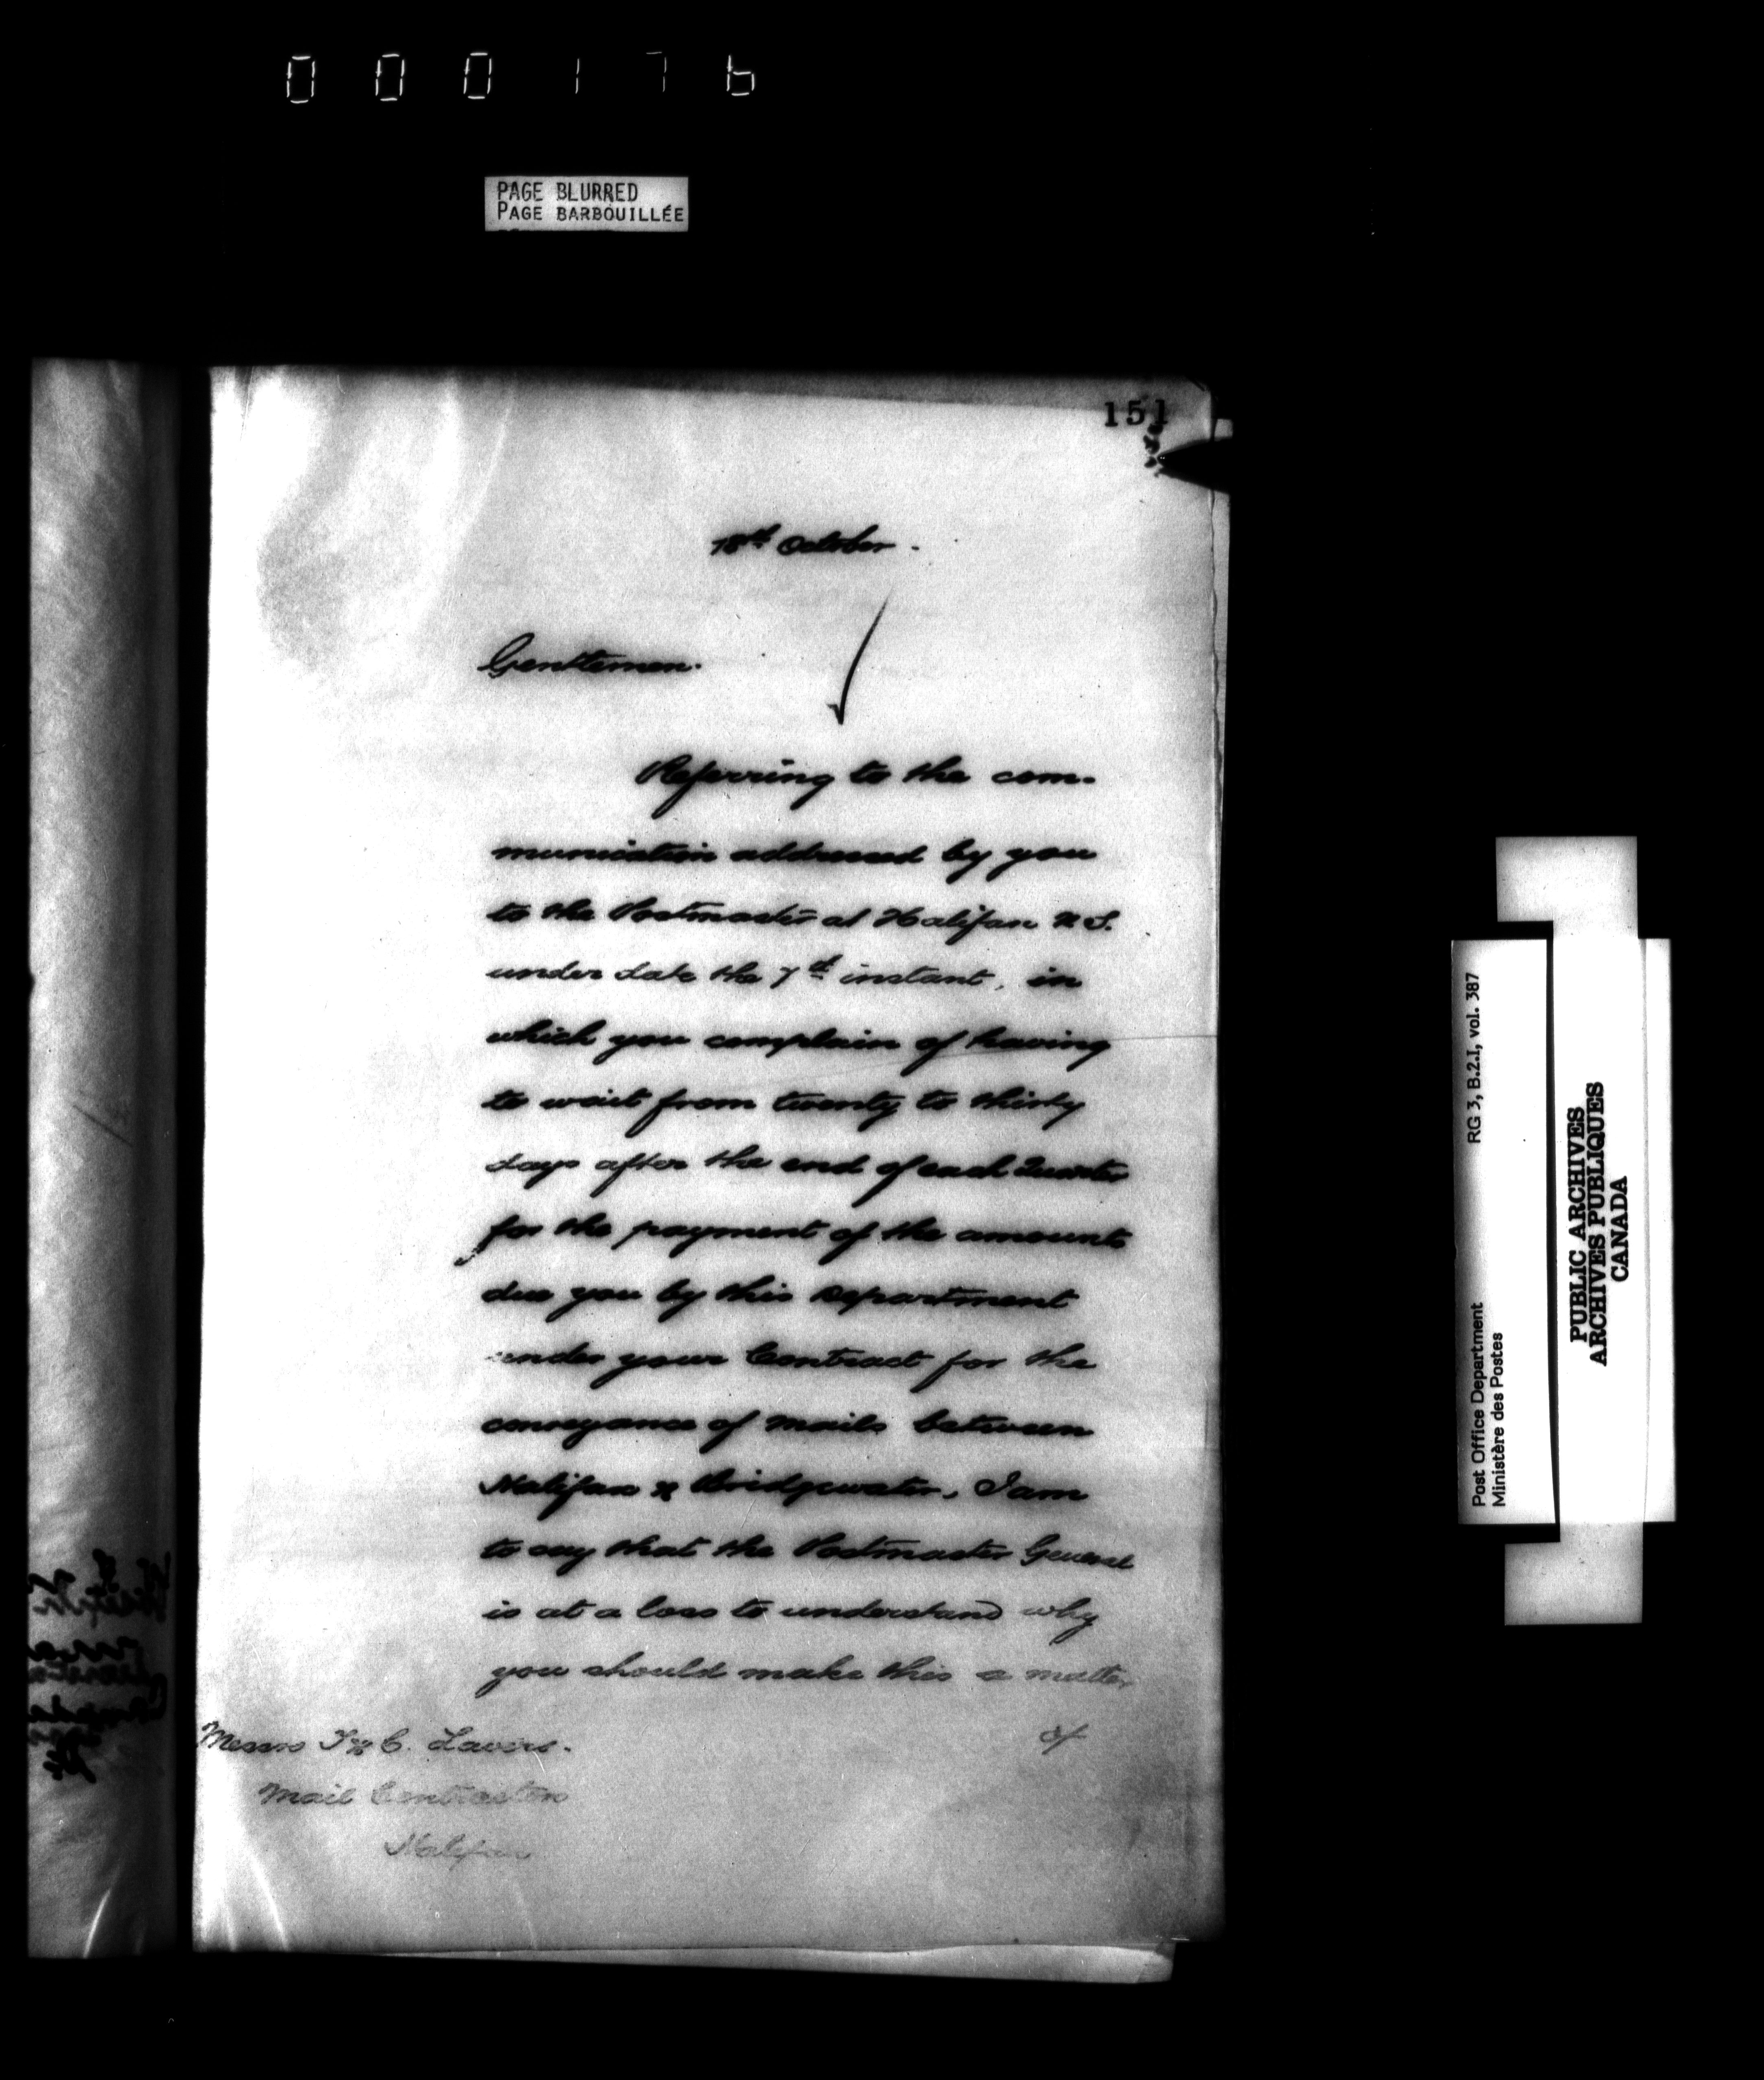 000176
PAGE BLURRED
PAGE BARBOUILLÉE
151
18th October.
Gentlemen.
Referring to the com-
munication addressed by you
to the Postmaster at Halifax N S.
under date the 7th instant, in
which you complain of having
to wait from twenty to thirty
days after the end of each Quarter
for the payment of the amounts
due you by this Department
under your Contract for the
conveyance of Mails between
Halifax & Bridgewater, I am
to say that the Postmaster General
is at a loss to understand why
you should make this a matter
of
Messrs T & C. Lavers.
Mail Contractors
Halifax
Post Office Department RG 3, B.2.I, vol. 387
Ministère des Postes
PUBLIC ARCHIVES
ARCHIVES PUBLIQUES
CANADA